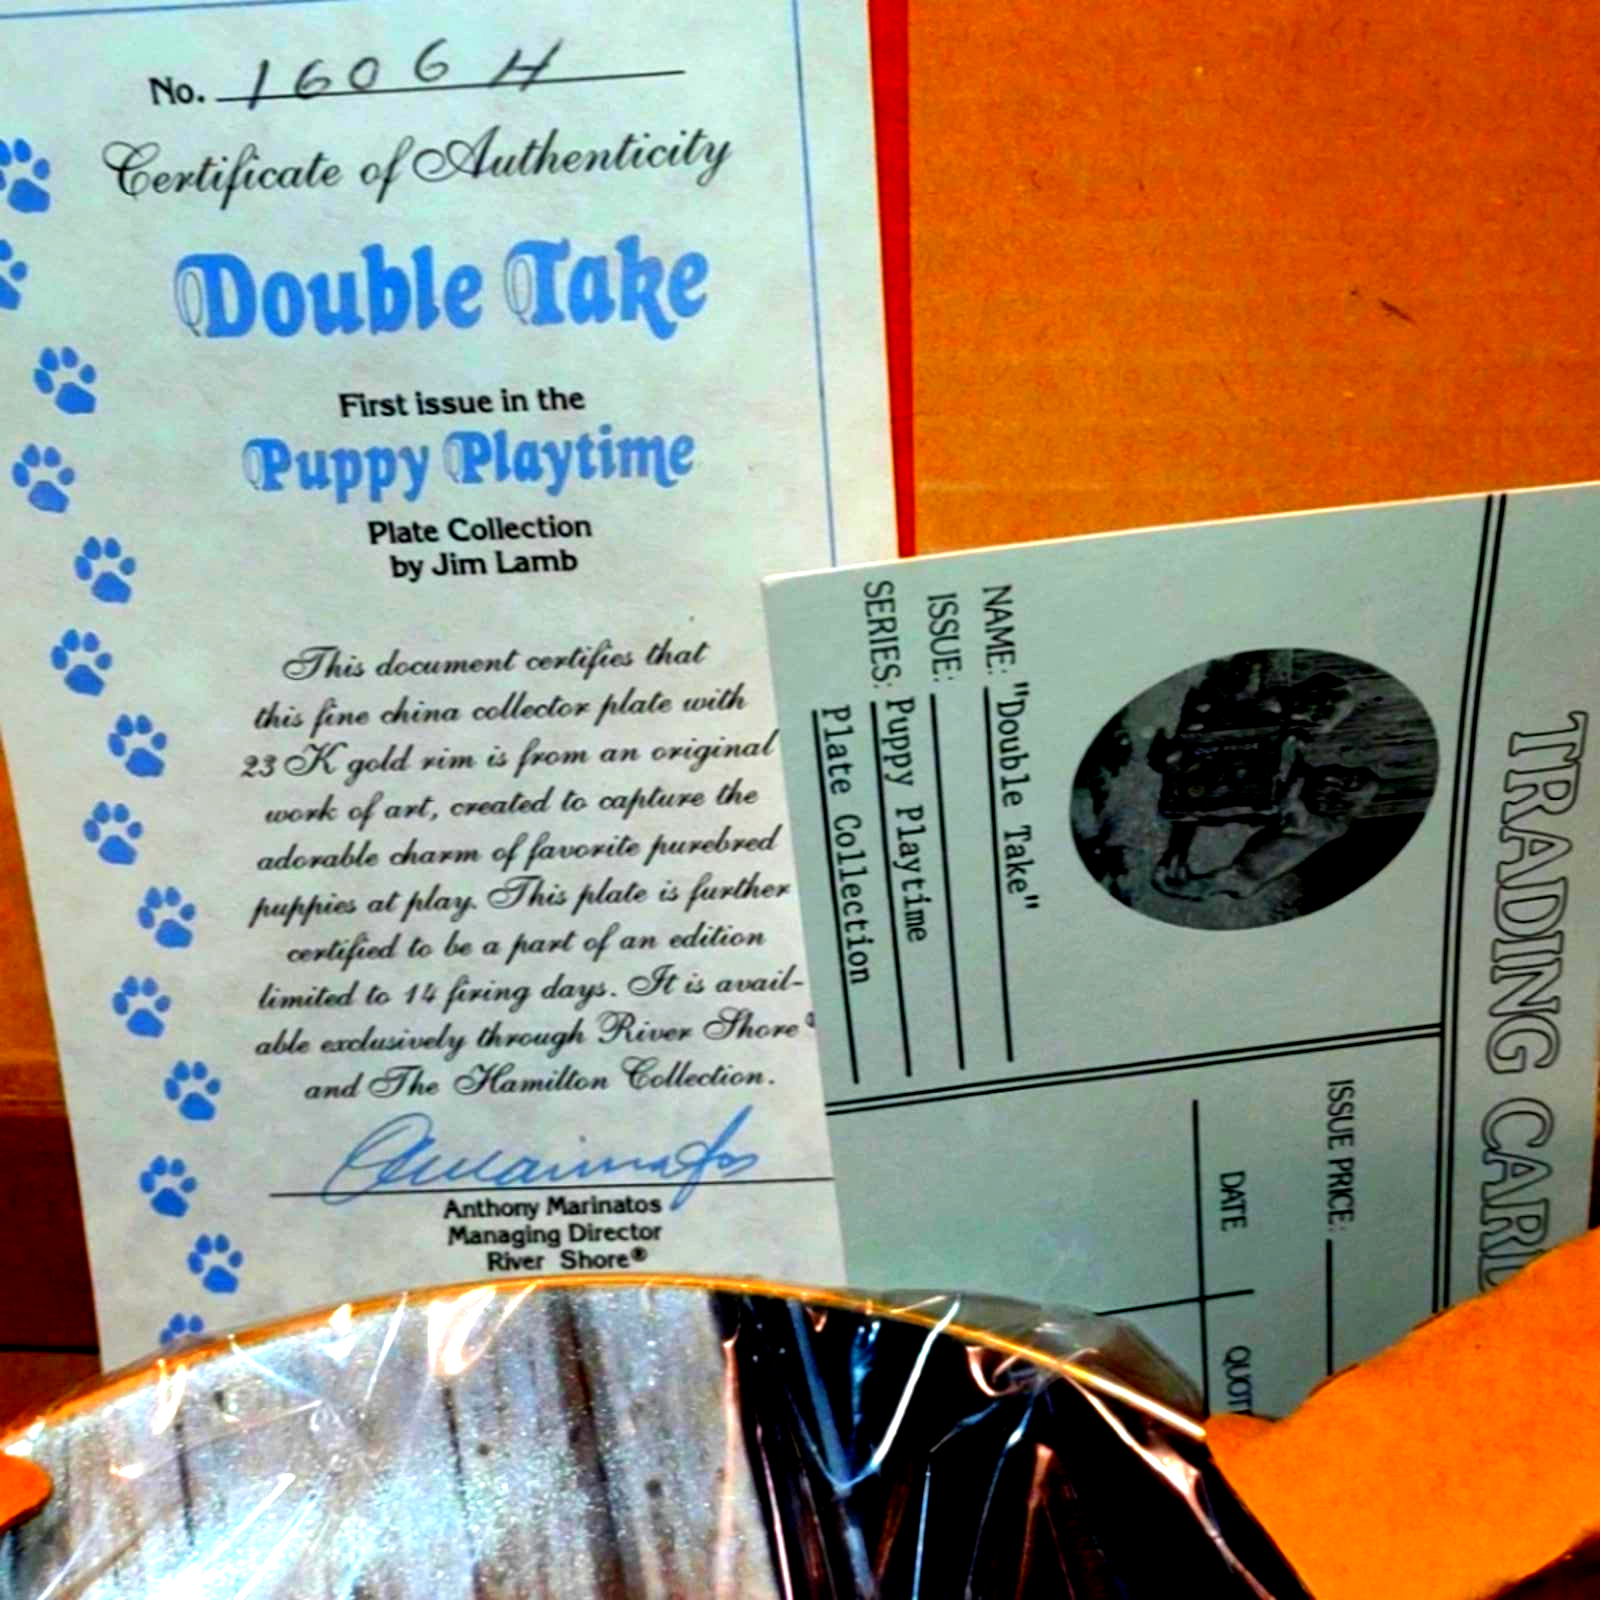 No. 1606 H
Certificate of Authenticity
Double Take
First issue in the
Puppy Playtime
Plate Collection
by Jim Lamb
This document certifies that
this fine china collector plate with
23 K gold rim is from an original
work of art, created to capture the
adorable charm of favorite purebred
puppies at play. This plate is further
certified to be a part of an edition
limited to 14 firing days. It is avail-
able exclusively through River Shore®
and The Hamilton Collection.
Anthony Marinatos
Managing Director
River Shore®
TRADING CARD
NAME: "Double Take"
ISSUE:
SERIES: Puppy Playtime
Plate Collection
ISSUE PRICE:
DATE